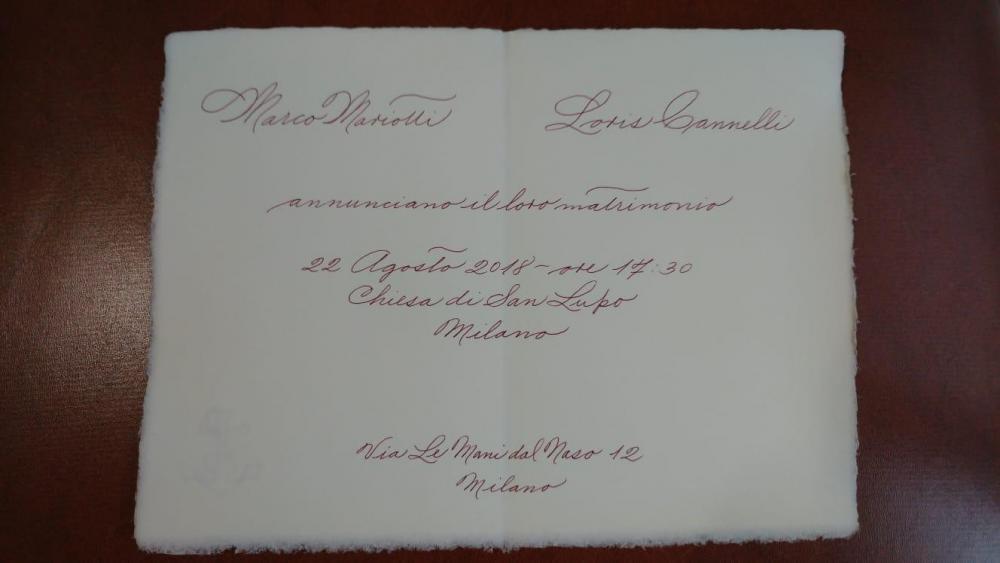 Marco Mariotti Loris Cannelli
annunciano il loro matrimonio
22 Agosto 2018 - ore 17:30
Chiesa di San Lupo
Milano
Via Le Mani dal Naso 12
Milano